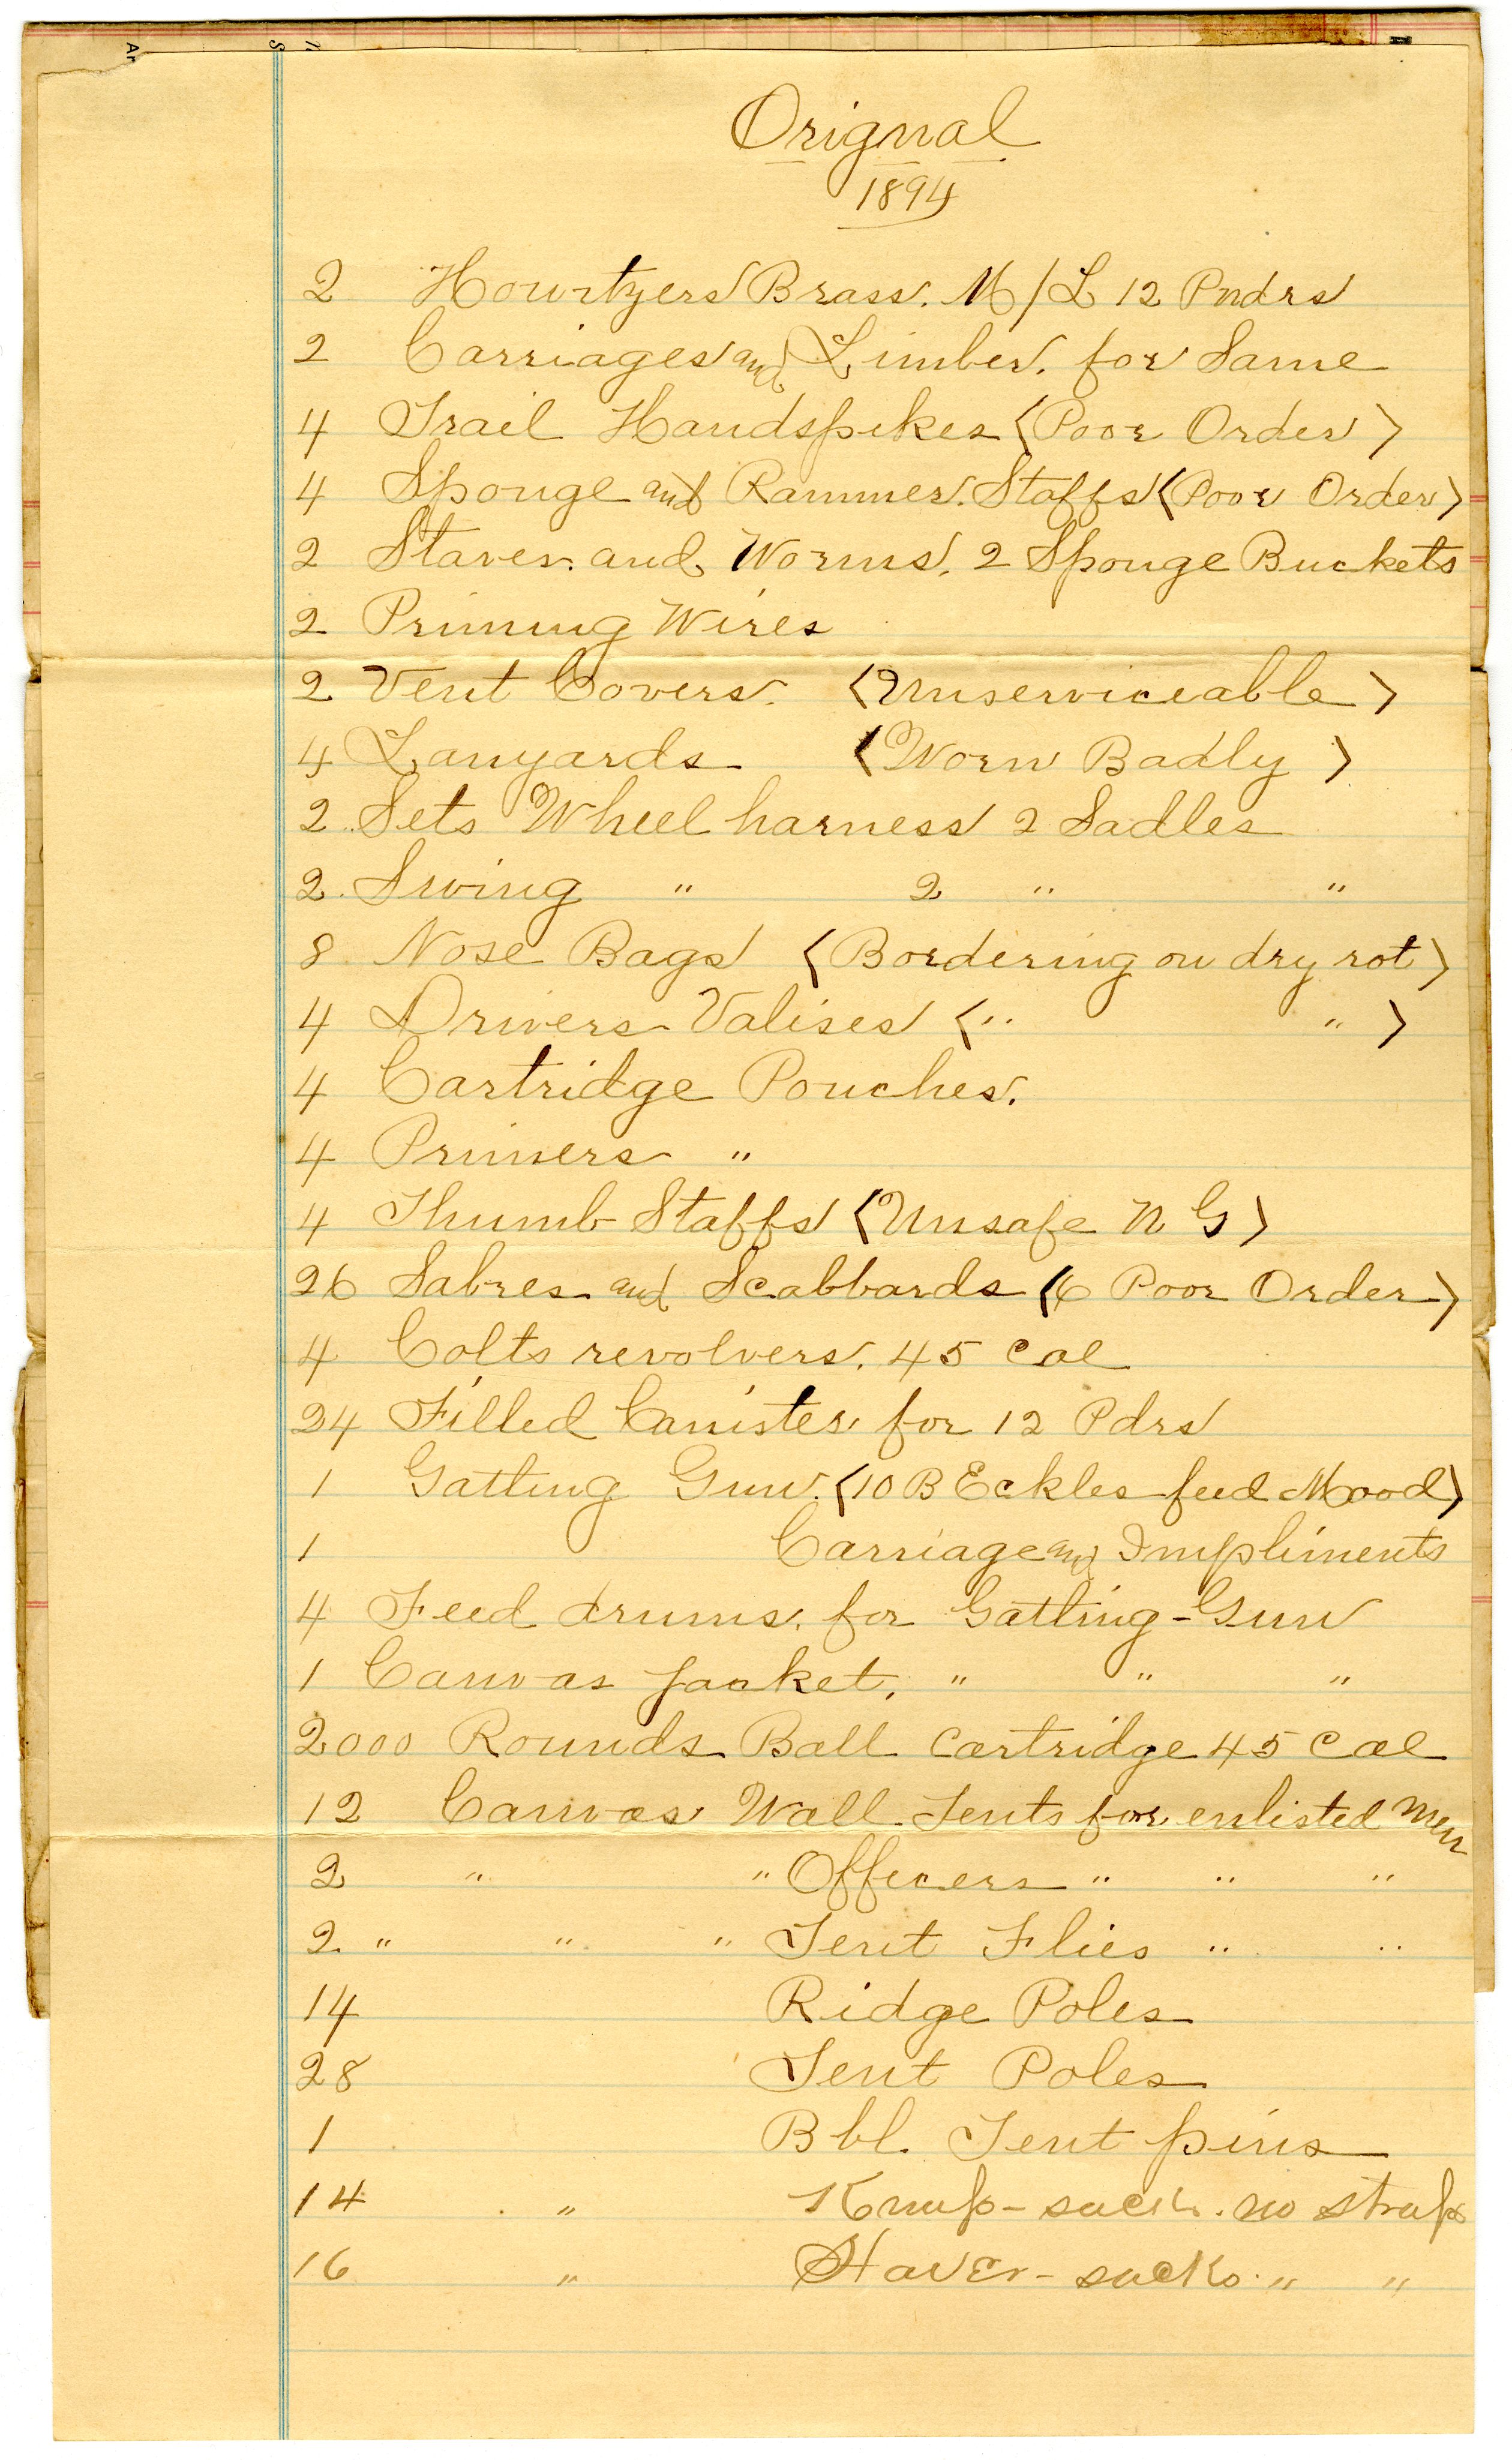 Orignal
1894
2 Howitzers Brass. M/L 12 Pndrs
2 Carriages and Limber. for Same
4 Trail Handspikes <Poor Order>
4 Sponge and Rammer. Staffs <Poor Order>
2 Staves. and Worms. 2 Sponge Buckets
2 Priming Wires
2 Vent Covers. <Unserviceable>
4 Lanyards <Worn Badly>
2 Sets Wheel harness 2 Sadles
2. Swing " 2 " "
8 Nose Bags <Bordering on dry rot>
4 Drivers Valises <" ">
4 Cartridge Pouches.
4 Primers "
4 Thumb Staffs <Unsafe N G>
26 Sabres and Scabbards <6 Poor Order>
4 Colts revolvers. 45 Cal
24 Filled Canister for 12 Pdrs
1 Gatling Gun. <10 B Eckles feed Mood>
1 Carriage and Impliments
4 Feed drums. for Gatling-Gun
1 Canvas Jacket. " " "
2000 Rounds Ball Cartridge 45 Cal
12 Canvas Wall Tents for enlisted Men
2 " " Officers " " "
2. " " " Tent Flies " "
14 Ridge Poles
28 Tent Poles
1 Bbl. Tent pins
14 " Knap-sack. no straps
16 " Haver-sacks. " "